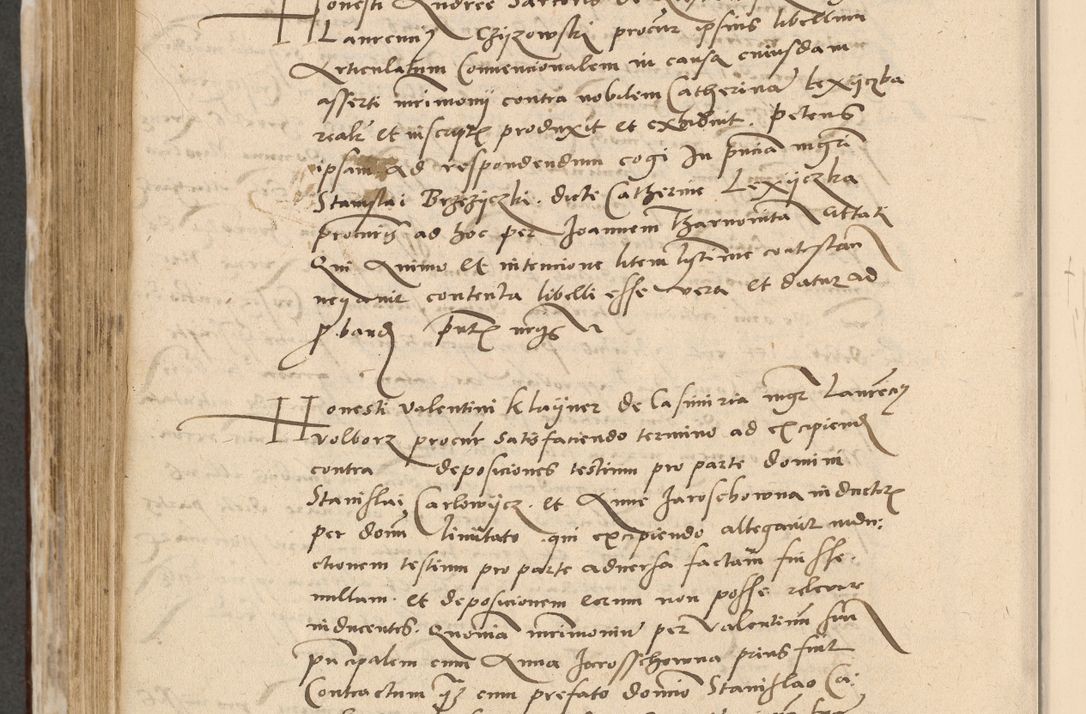 Honesti Andree Sartoris de
Laurencij Czijzowski procur ipsius libellum
Articulatum Conuencionalem in causa cuiusdam
asserti mrimonij contra nobilem Catherina Lexijczka
realr et inscriptis produxit et exhibuit. Petens
ipsam ad respondendum cogi In pncia mgri
Stanislai Brzezijczki. dicte Catherine Lexijczka
procuris ad hoc per Joannem Tharnowita
Qui Animo et intencione litem lystime contestan
negauit contenta libelli esse vera et datur ad
pband pntes mgris
Honesti Valentini Klaijner de Casimiria mgr Laurency
Volborz procur satisfaciendo termino ad excipiend
contra deposiciones testium pro parte domini
Stanislai Carlowijcz. et Anne Jaroschowna inductor
per donum limitato qui excipiendo allegauit indu:
ctionem testium pro parte aduersa factam fuisse.
nullam. et deposicionem eorum non posse releuare
inducentes. Quonia mrimoniu per Valentinu suu
principalem cum Anna Jarosschowna prius fuit
Contractum q cum prefato domino Stanislao Ca: